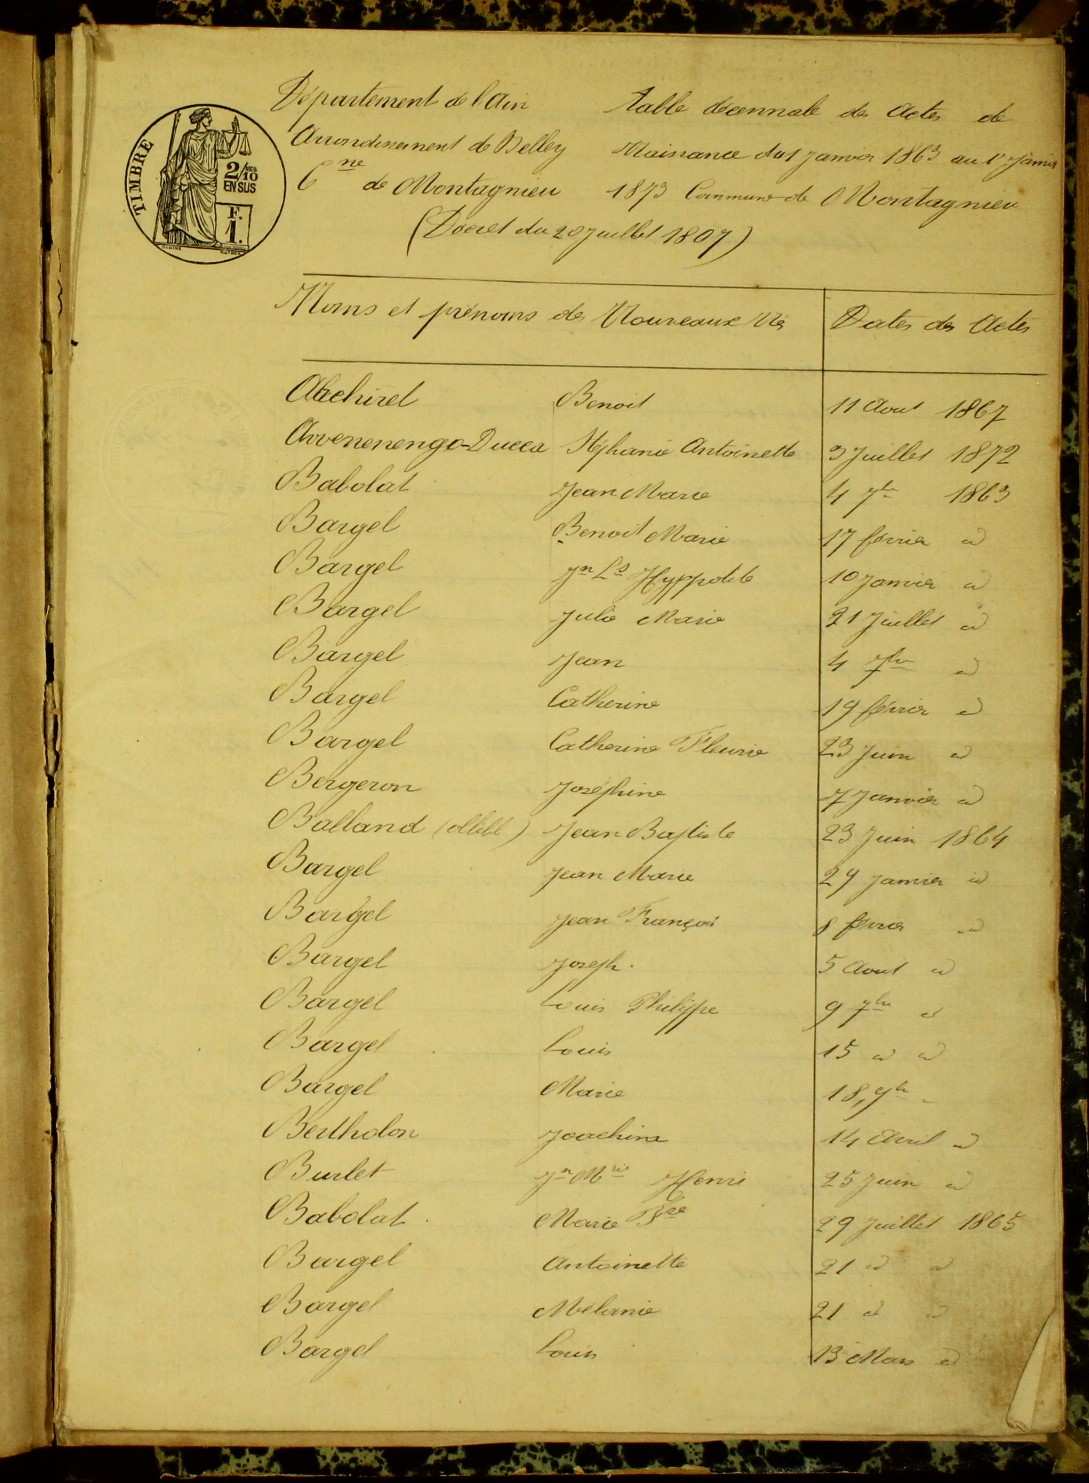 Département de l'Ain
Arrondissement de Belley
Cne de Montagnieu
Table décennale des Actes de
Naissance du 1 Janvier 1863 au 1r Janvier
1873 Commune de Montagnieu
(Décret du 20 Juillet 1807)
TIMBRE
2/10 EN SUS
F.
1.
Noms et prénoms des Nouveaux Nés Dates des Actes
Benoit 11 Aout 1867
Avvenenengo-Ducca Stéphanie Antoinette 3 Juillet 1872
Babolat Jean Marie 4 7bre 1863
Bargel Benoit Marie 17 février id
Bargel Jn Ls Hyppolite 10 Janvier id
Bargel Julie Marie 21 Juillet id
Bargel Jean 4 id
Bargel Catherine 19 février id
Bargel Catherine Fleurie 23 Juin id
Bergeron Joséphine 7 Janvier id
Balland Jean Baptiste 23 Juin 1864
Bargel Jean Marie 29 Janvier id
Bargel Jean François 8 février id
Bargel Joseph 5 Aout id
Bargel Louis Philippe 9 7bre id
Bargel Louis 15 id id
Bargel Marie 18
Bertholon Joachim 14 Avril id
Burlet Jn Mie Henri 25 Juin id
Babolat Marie 29 Juillet 1865
Bargel Antoinette 21 id id
Bargel Mélanie 21 id id
Bargel Louis 13 Mars id